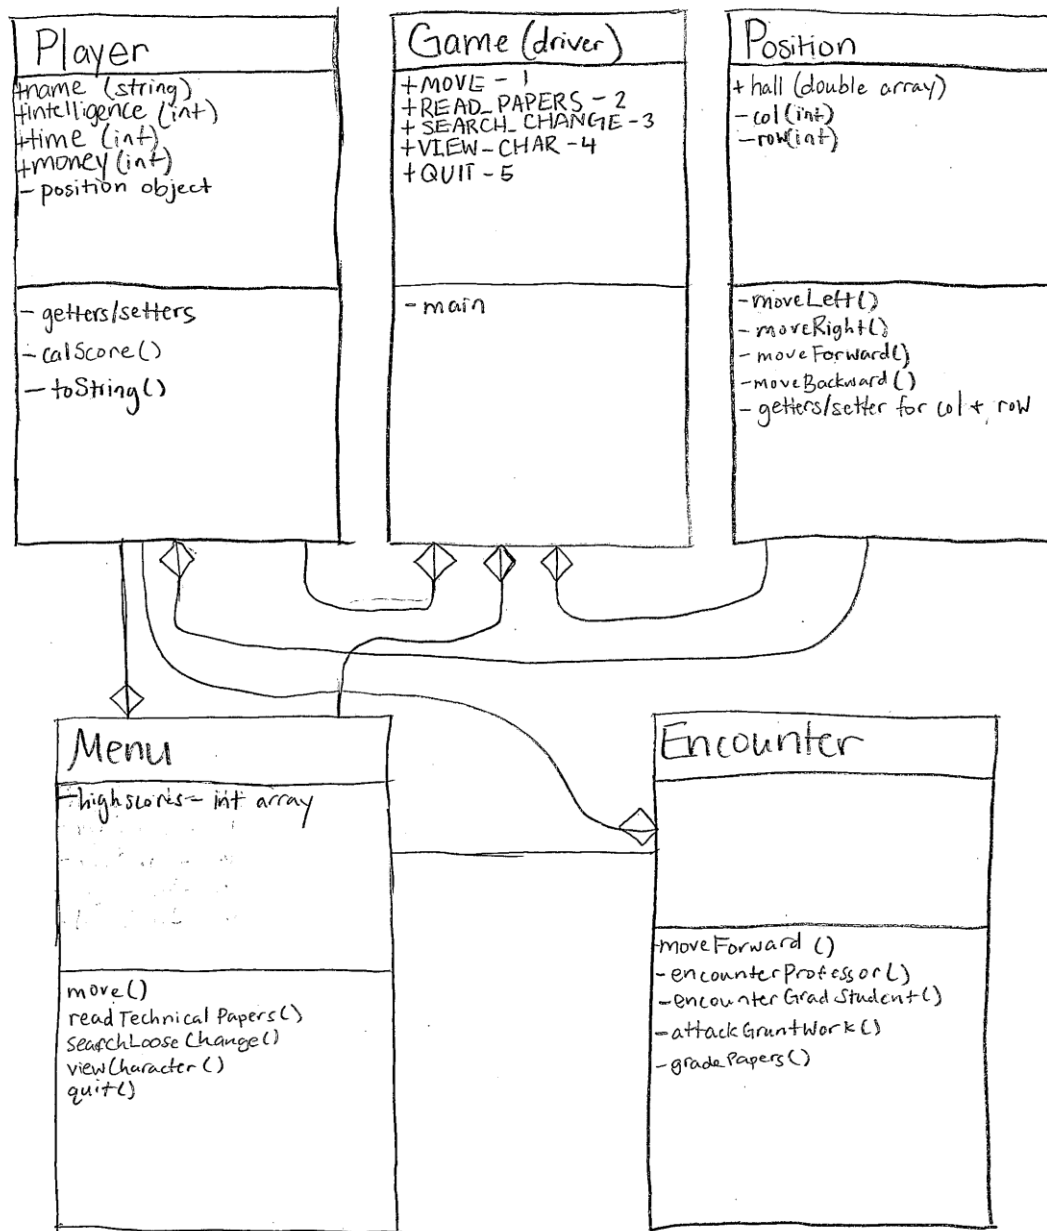 Player
+name (string)
+intelligence (int)
+time (int)
+money (int)
- position object
- getters/setters
- calScore()
- toString()
Game (driver)
+MOVE - 1
+READ_PAPERS - 2
+ SEARCH_CHANGE - 3
+VIEW_CHAR - 4
+QUIT - 5
- main
Position
+ hall (double array)
- col (int)
- row (int)
- moveLeft()
- moveRight()
- moveForward()
- moveBackward()
- getters/setter for col + row
Menu
- highscores - int array
move()
readTechnical Papers()
searchLoose Change()
viewCharacter()
quit()
Encounter
-moveForward ()
- encounterProfessor()
- encounterGradStudent()
- attackGruntWork()
- gradePapers()